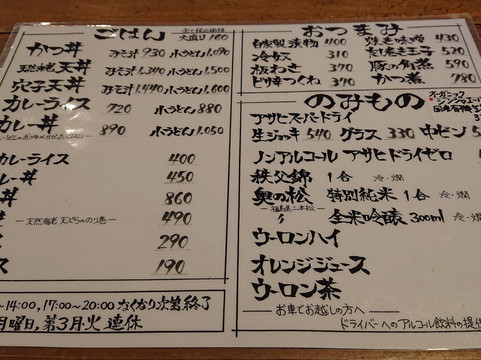 ごはん 全て税込価格
大盛り160
かつ丼 みそ汁 930 小うどん 1,090
天然海老 天丼 みそ汁 1,340 小うどん 1,500
穴子天丼 みそ汁 1,440 小うどん 1,600
カレーライス 720 小うどん 880
カレー丼 890 小うどん 1,050
カレーライス 400
カレー丼 450
丼 860
天然海老 天むちゃのり巻 490
290
ス 190
~14:00, 17:00~20:00 なくなり次第終了
月曜日, 第3月・火 連休
おつまみ
自家製 漬物 400 焼き味噌 430
冷奴 310 だし巻き玉子 520
板わさ 370 豚の角煮 590
ピリ辛つくね 390 かつ煮 780
のみもの オーガニック
ジンジャエール
アサヒスーパードライ
生ジョッキ 540 グラス 330 中ビン
ノンアルコール アサヒドライゼロ
秩父錦 1合 冷・燗
奥の松 特別純米 1合 冷・燗
福島県二本松 全米吟醸 300ml 冷
ウーロンハイ
オレンジジュース
ウーロン茶
お車でお越しの方へ
ドライバーへのアルコール飲料の提供